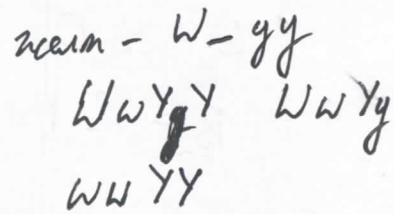 желт - W - yy
WwYyY WwYy
ww YY